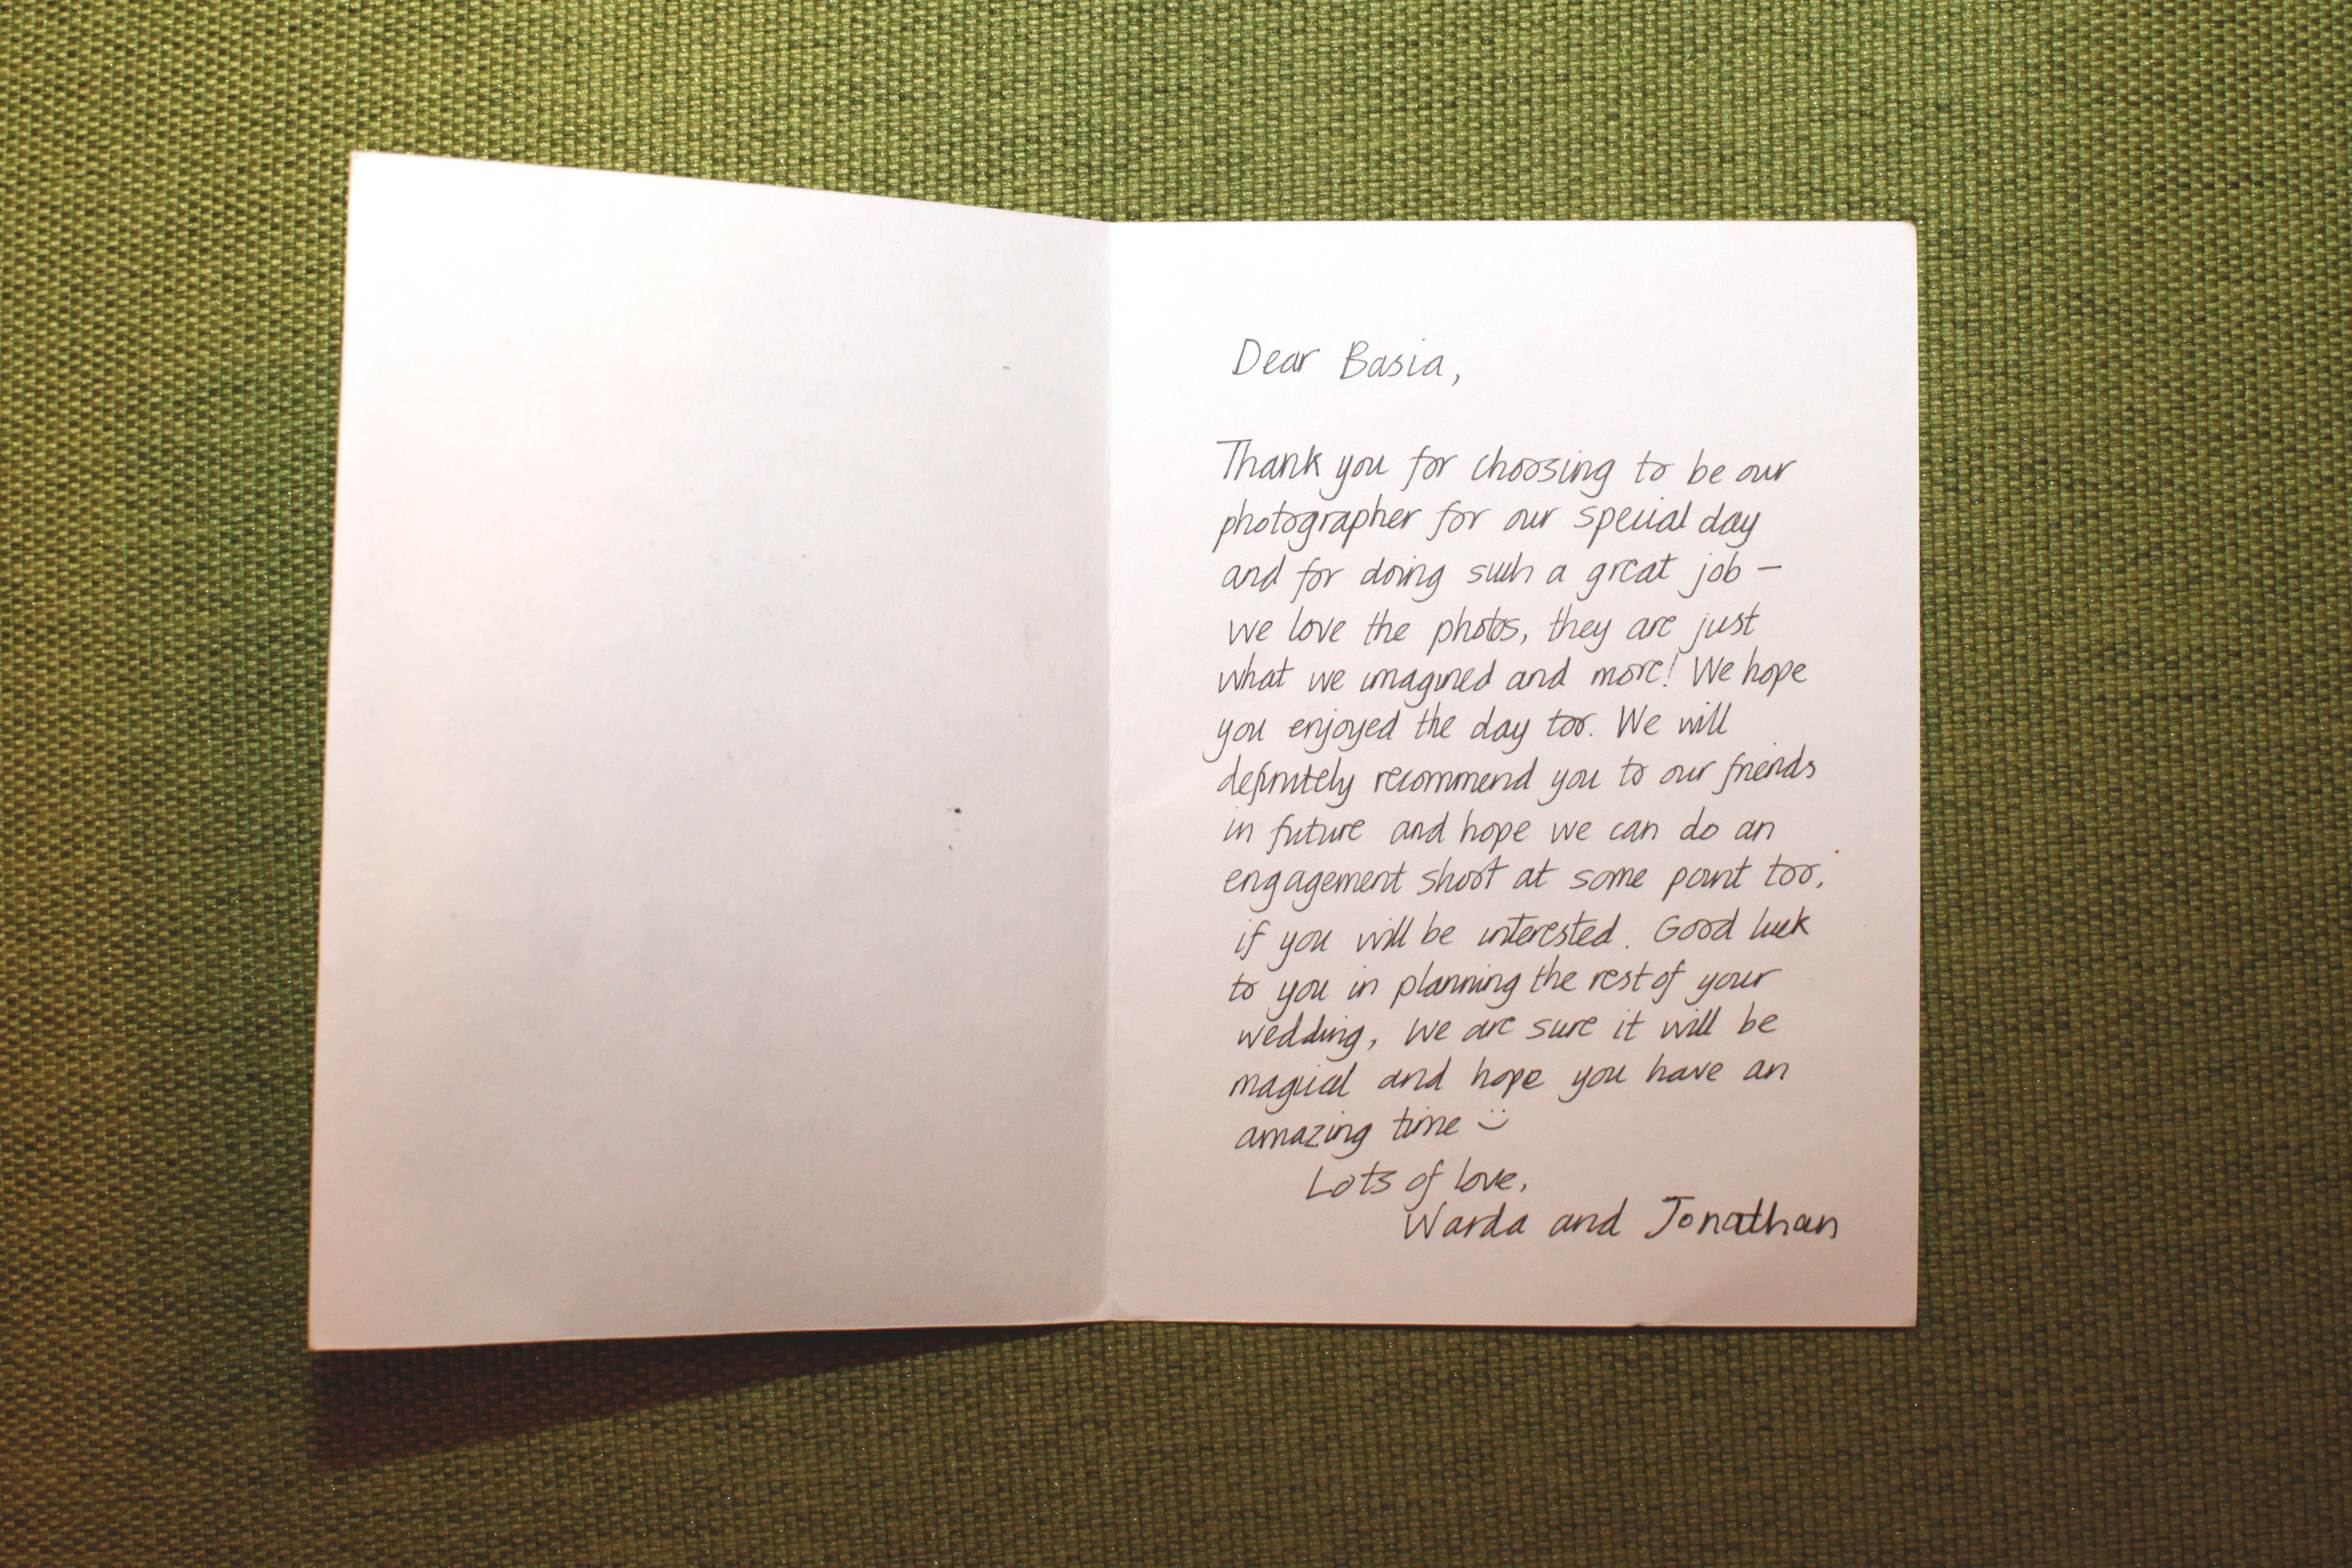 Dear Basia,
Thank you for choosing to be our
photographer for our special day
and for doing such a great job –
we love the photos, they are just
what we imagined and more! We hope
you enjoyed the day too. We will
definitely recommend you to our friends
in future and hope we can do an
engagement shoot at some point too,
if you will be interested. Good luck
to you in planning the rest of your
wedding, we are sure it will be
magical and hope you have an
amazing time :)
Lots of love,
Warda and Jonathan